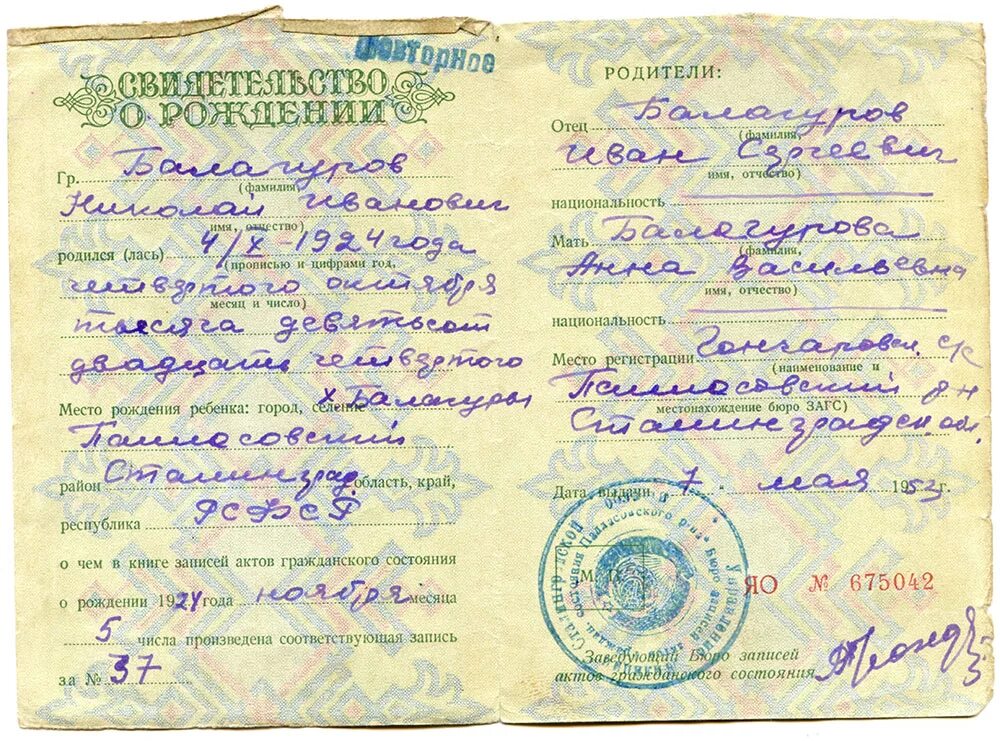 Повторное
СВИДЕТЕЛЬСТВО
О РОЖДЕНИИ
Гр. Балагуров
(фамилия,
Николай Иванович
имя, отчество)
родился (лась) 4/X-1924 года
(прописью и цифрами год,
четвэртого октября
месяц и число)
тысяча девятьсот
двадцать четвэртого
Место рождения ребенка: город, селение х Балагуры
Палласовский
район Сталинград область, край,
республика РСФСР
о чем в книге записей актов гражданского состояния
о рождении 1924 года ноября месяца
5 числа произведена соответствующая запись
за № 37
РОДИТЕЛИ:
Отец Балагуров
(фамилия,
Иван Сэргеевич
имя, отчество)
национальность
Мать Балагурова
(фамилия,
Анна Васильевна
имя, отчество)
национальность
Место регистрации Гончаровск. с/с
(наименование и
Палласовский р-н
местонахождение бюро ЗАГС)
Сталинградск. обл.
Дата выдачи 7 мая 1952 г.
М. П.
ЯО № 675042
Заведующий Бюро записей
актов гражданского состояния